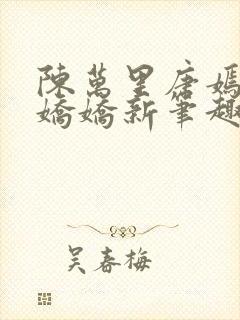 陳萬里唐嫣
嬌嬌新筆趣
吴春梅